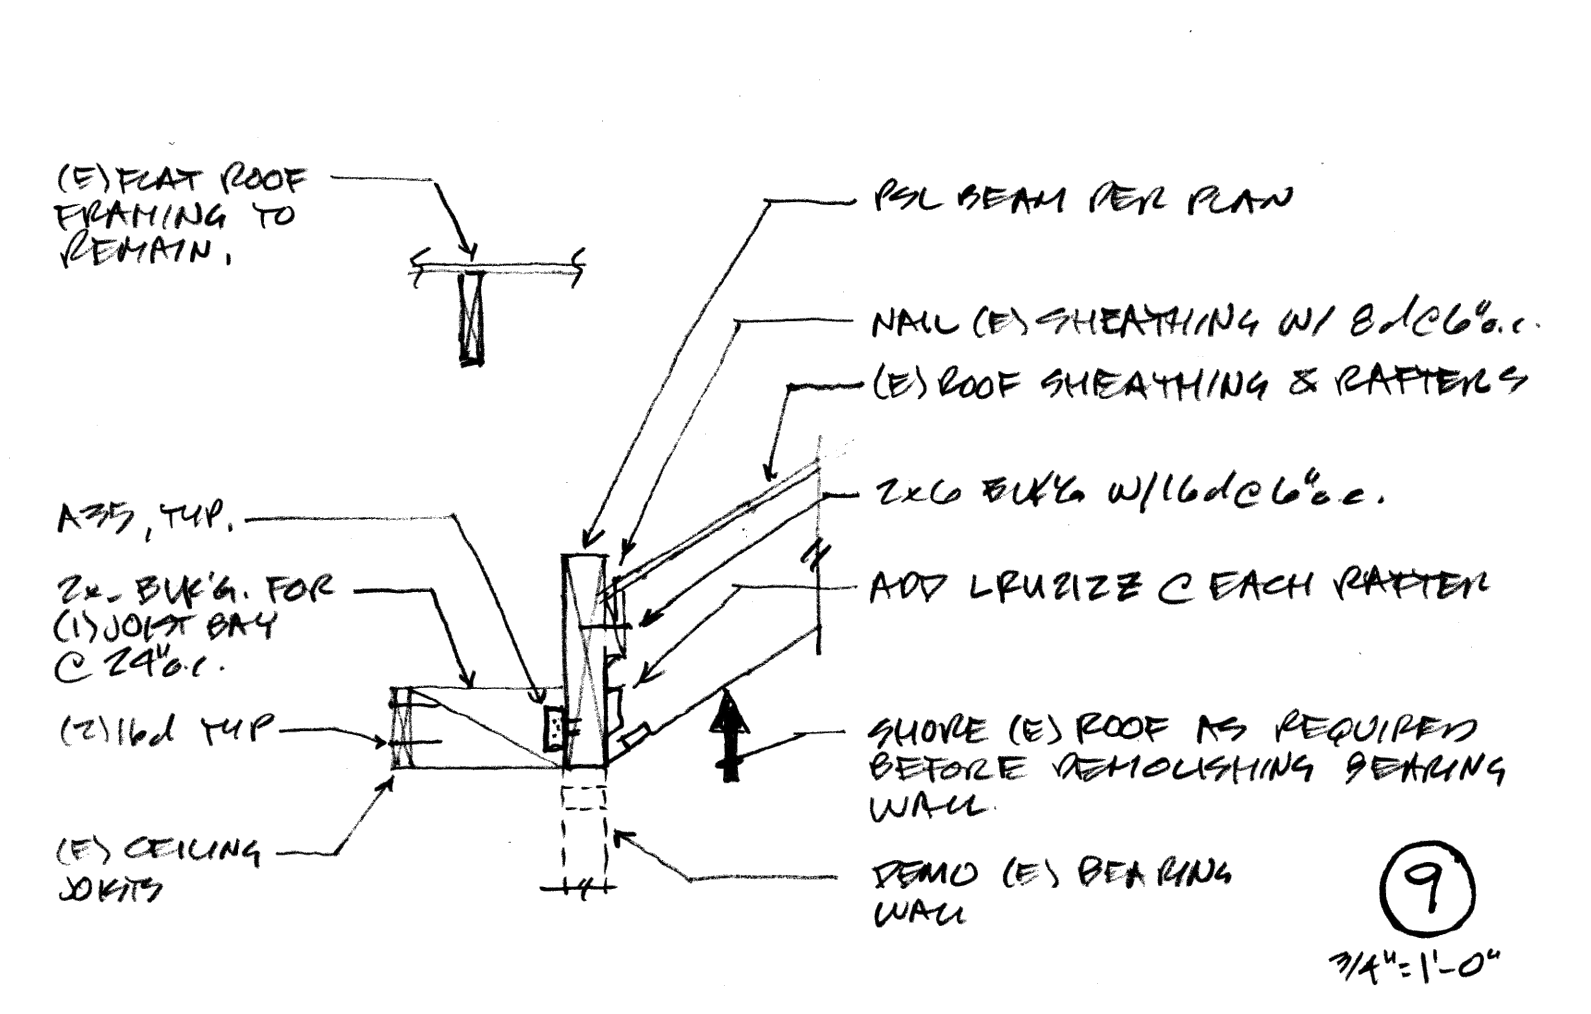 (E) FLAT ROOF
FRAMING TO
REMAIN.
A35, TYP.
2x_ BLK'G. FOR
(1) JOIST BAY
@ 24" o.c.
(2) 16d TYP
(E) CEILING
JOISTS
PSL BEAM PER PLAN
NAIL (E) SHEATHING W/ 8d @ 6" o.c.
(E) ROOF SHEATHING & RAFTERS
2x6 BLK'G W/ 16d @ 6" o.c.
ADD LRU212Z @ EACH RAFTER
SHORE (E) ROOF AS REQUIRED
BEFORE DEMOLISHING BEARING
WALL.
DEMO (E) BEARING
WALL
9
3/4" = 1'-0"